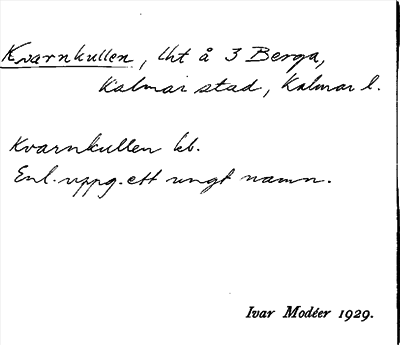 Kvarnkullen, lht å 3 Berga,
Kalmar stad, Kalmar l.
Kvarnkullen kb.
Enl. uppg. ett ungt namn.
Ivar Modéer 1929.